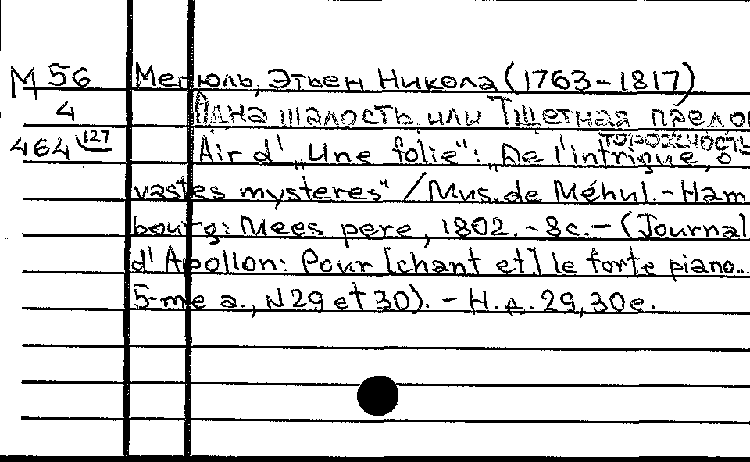 М 56 Мегюль, Этьен Никола (1763-1817)
4 Адна шалость или Тщетная предо
торожность
464 127 Air d' „Une folie": „De l'intrigue, ô
vastes mysteres" / Mus. de Méhul. - Ham
bourg: Mees pere, 1802. - 8с. - (Journal
d'Apollon: Pour [chant et] le forte piano...
5-me a., N 29 et 30). - Н.д. 29, 30е.